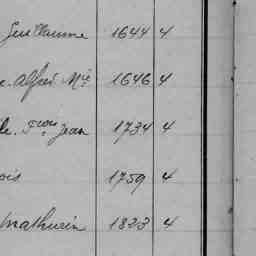 Guillaume 1644 4
e. Alfred Mie 1646 4
de. Fçois Jean 1734 4
ois 1759 4
Mathurin 1823 4